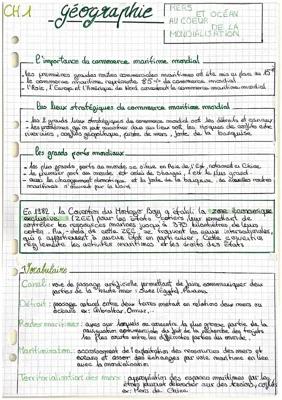 CH 1
géographie
MERS
ET OCÉAN
AU COEUR
DE LA
MONDIALISATION
l'importance du commerce maritime mondial
les premières grandes routes commerciales maritimes ont été mis en place au 15e
le commerce maritime représente 85% du commerce mondial
l'Asie, l'Europe et l'Amérique du Nord dominent le commerce maritime mondial
Des lieux stratégiques du commerce maritime mondial
les 2 grands lieux stratégiques du commerce mondial sont les détroits et canaux
les problèmes qu'on peut rencontrer dans ces lieux sont les risques de conflits entre
riverains, conflits géopolitiques, pirates de mers, fonte de la banquise.
les grands ports mondiaux
les plus grands ports du monde se situe en Asie de l'Est, notamment en Chine.
le premier port du monde est celui de Shanghai, c'est le plus grand.
avec les changements climatiques et la fonte de la banquise, de nouvelles routes
maritimes s'ouvrent par le Nord
En 1982, la Convention du Montego Bay a établi la zone économique
exclusive (ZEE) pour les États côtiers leur permettant de
contrôler les ressources marines jusqu'à 370 kilomètres de leurs
côtes. Au-delà de cette ZEE, se trouvent les eaux internationales,
qui n'appartiennent à aucun État en particulier. Cette convention
réglemente les activités maritimes et les droits des États
Vocabulaire
Canal: voie de passage artificielle permettant de faire communiquer deux
parties de la mer. Ex: Suez (Egypte), Panama,
Détroit: passage naturel entre deux terres mettant en relations deux mers ou
océans ex: Gibraltar, Ormuz,
Routes maritimes: axes sur lesquels se concentre la plus grande partie de la
circulation commerciale du fait de la recherche des trajets
les plus courts entre les différentes parties du monde.
Maritimisation: accroissement de l'exploitation des ressources des mers et
océans et essor des échanges par voie maritime en lien
avec la mondialisation
Territorialisation des mers: appropriation des espaces maritimes par les
états pouvant déboucher sur des tensions, conflits
ex: Mers de Chine.